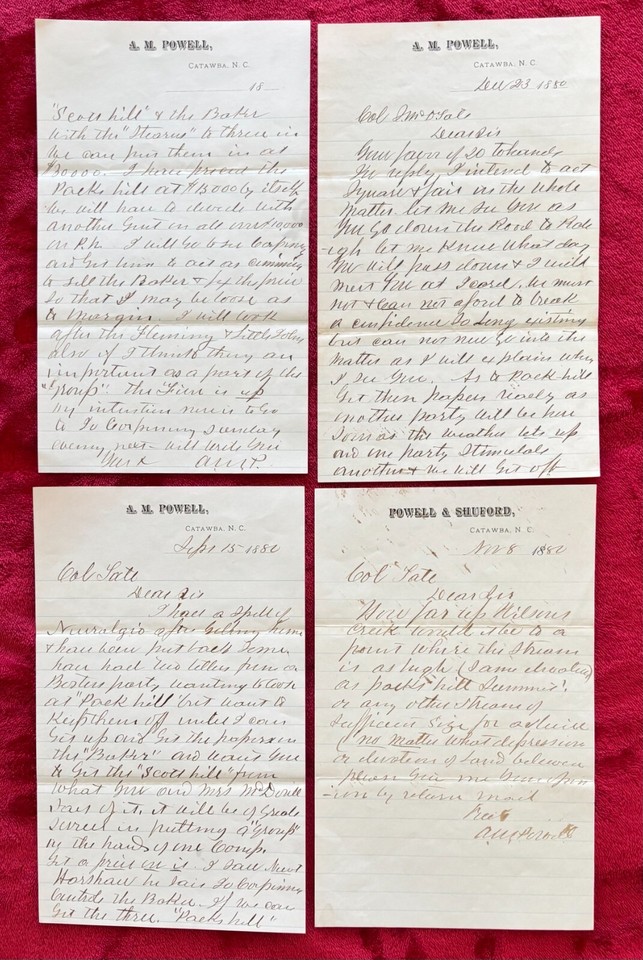 A. M. POWELL,
CATAWBA, N. C.
18
"Scott hill" & the Baker
with the "Stearns" to throw in
we can put them in at
I have priced the
Pack hill at $13000 by itself
we will have to divide with
another Gent on all over $10,000
on P.h. I will go to see Corpning
and get him to act as
to sell the Baker & fix the price
So that I may be loose as
to margin. I will look
after the Fleming & Little John
also if I think they are
important as a part of the
"group". The "Iron is up
my intention now is to Go
to Corpning Sunday
evening next will write you
Yours A.M.P.
A. M. POWELL,
CATAWBA, N. C.
Dec 23 1880
Col Tate
Dear Sir
Your favor of 20 to hand
In reply, I intend to act
Square & fair in the whole
matter. let me see you as
you go down the Road to Rale
-igh let me know what day
you will pass down & I will
meet you at We must
not & can not aford to break
a confidence so long existing
but can not now go into the
matter as I will explain when
I see you. As to Pack hill
Get them papers ready as
another party will be here
Soon as the weather lets up
and one party Stimulats
another & we will get off
A. M. POWELL,
CATAWBA, N. C.
Sept 15 1880
Col Tate
Dear Sir
I had a Spell of
Neuralgia after Geting home
& have been put back Some
have had two letters from a
Boston party wanting to look
at "Pack hill" but want to
Keep them off until I can
Get up and Get the papers on
the "Baker" and want you
to Get the "Scotts hill" from
what you and Mrs McDowell
Says of it, it will be of Great
Service in putting a "Group"
in the hands of one Comp.
Get a price on it. I saw
he says Corpning
Controls the Baker. If we can
Get the three. "Packs hill"
POWELL & SHUFORD,
CATAWBA, N. C.
Nov 8 1880
Col Tate
Dear Sir
How far up Wilsons
Creek would it be to a
point where the Stream
is as high (Same elevation)
as packs hill Summit.
or any other Stream of
Sufficient Size for a
(no matter what depression
or elevation of land between
please Give me your opin
-ion by return mail
A M Powell